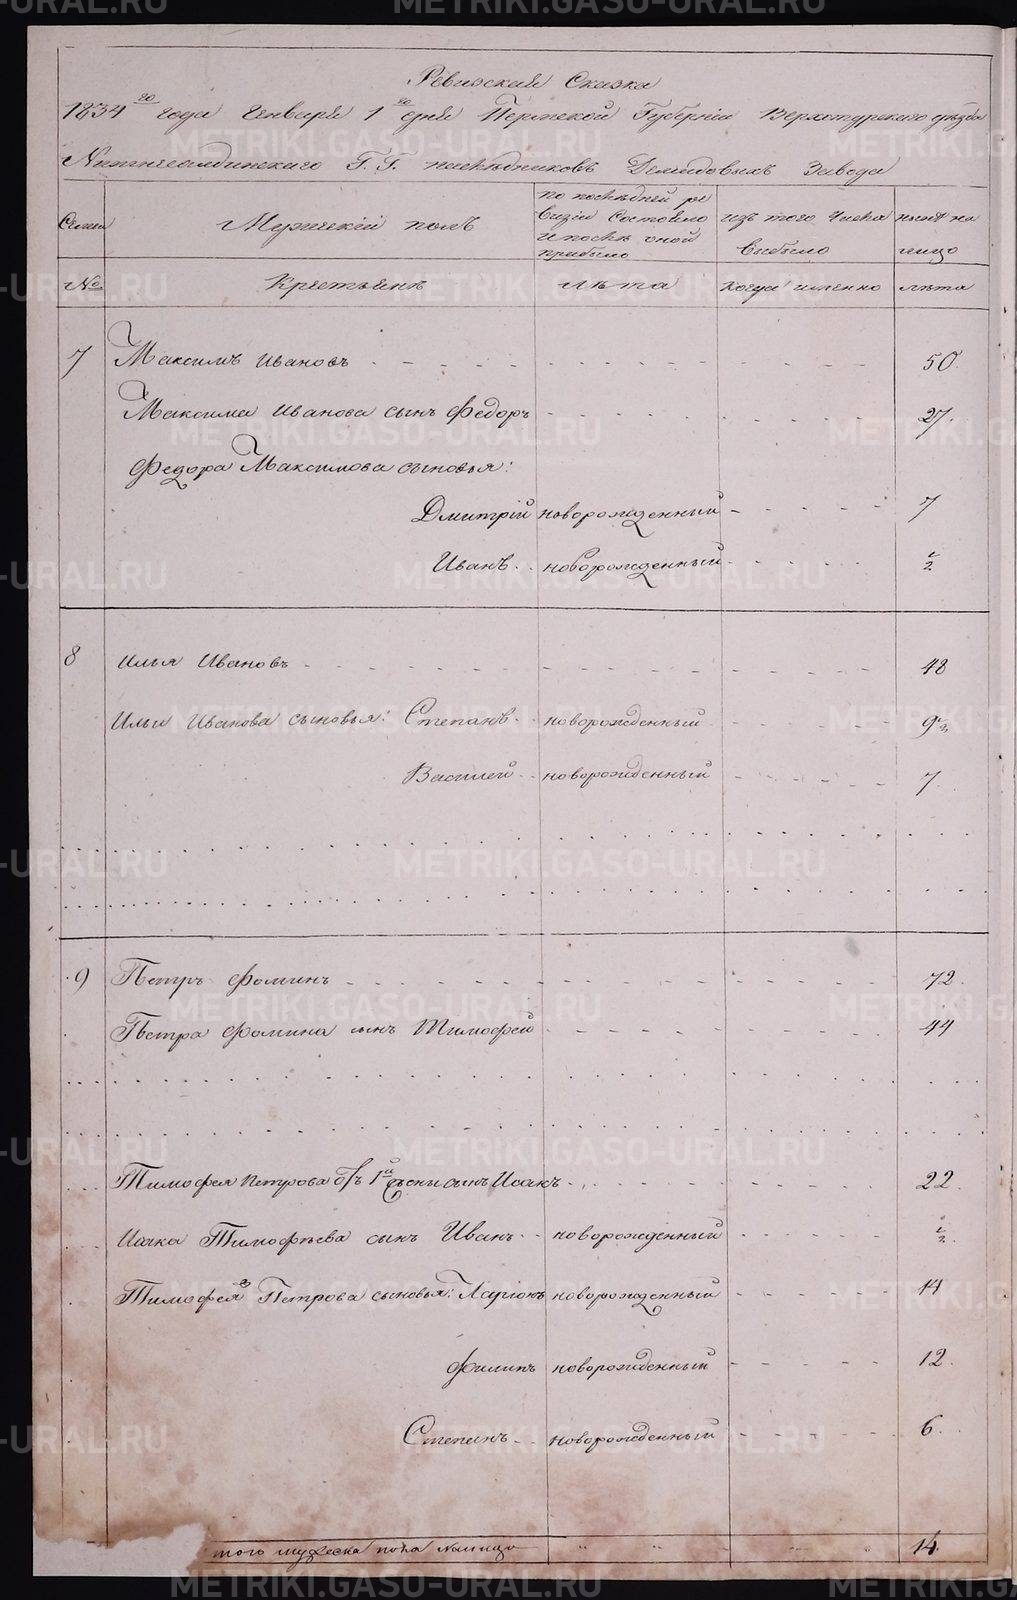 Ревизская Сказка
1834го года Генваря 1го дня Пермской Губерніи Верхотурскаго уѣзда
Нижнесалдинскаго Г. Г. наслѣдниковъ Демидовыхъ Завода
Семьи
Мужескій полъ
по послѣдней ре
визіи Состояло
и послѣ оной
прибыло
изъ того Числа
выбыло
нынѣ на
лицо
№
Крестьянъ
лѣта
Когда именно
лѣта
7 Максимъ Ивановъ 50.
Максима Иванова сынъ Федоръ 27.
Федора Максимова сыновья:
Дмитрій новорожденный 7
Иванъ новорожденный ½
8 Илья Ивановъ 48
Ильи Иванова сыновья: Степанъ новорожденный 9½
Василей новорожденный 7
9 Петръ Фоминъ 72.
Петра Фомина сынъ Тимофей 44
Тимофея Петрова отъ 1й жены сынъ Исакъ 22.
Исака Тимофѣева сынъ Иванъ новорожденный ½.
Тимофея Петрова сыновья: Ларіонъ новорожденный 14
Филипъ новорожденный 12.
Степанъ новорожденный 6.
того мужеска пола налицо " " " " " 14.
METRIKI.GASO-URAL.RU